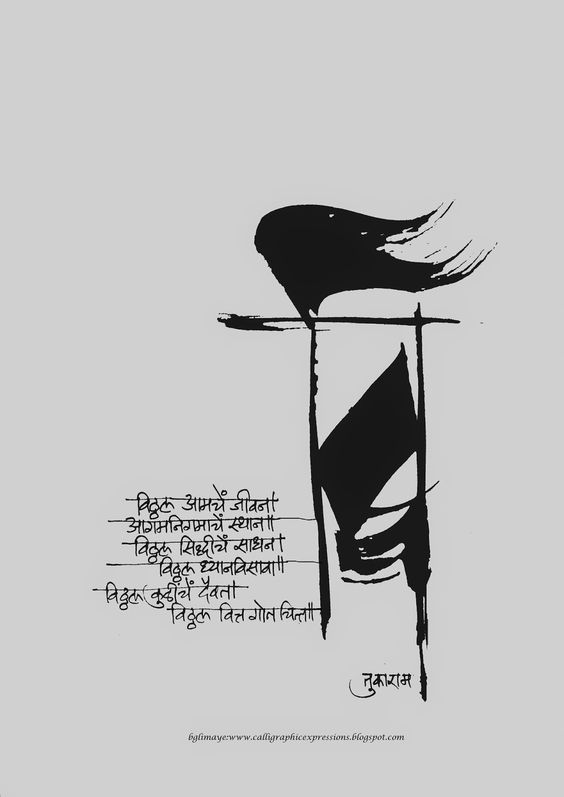 विठ्ठल आमचें जीवन।
आगमनिगमाचें स्थान॥
विठ्ठल सिद्धीचें साधन।
विठ्ठल ध्यानविसावा॥
विठ्ठल कुळींचें दैवत।
विठ्ठल वित्त गोत चित्त॥
तुकाराम
bglimaye:www.calligraphicexpressions.blogspot.com